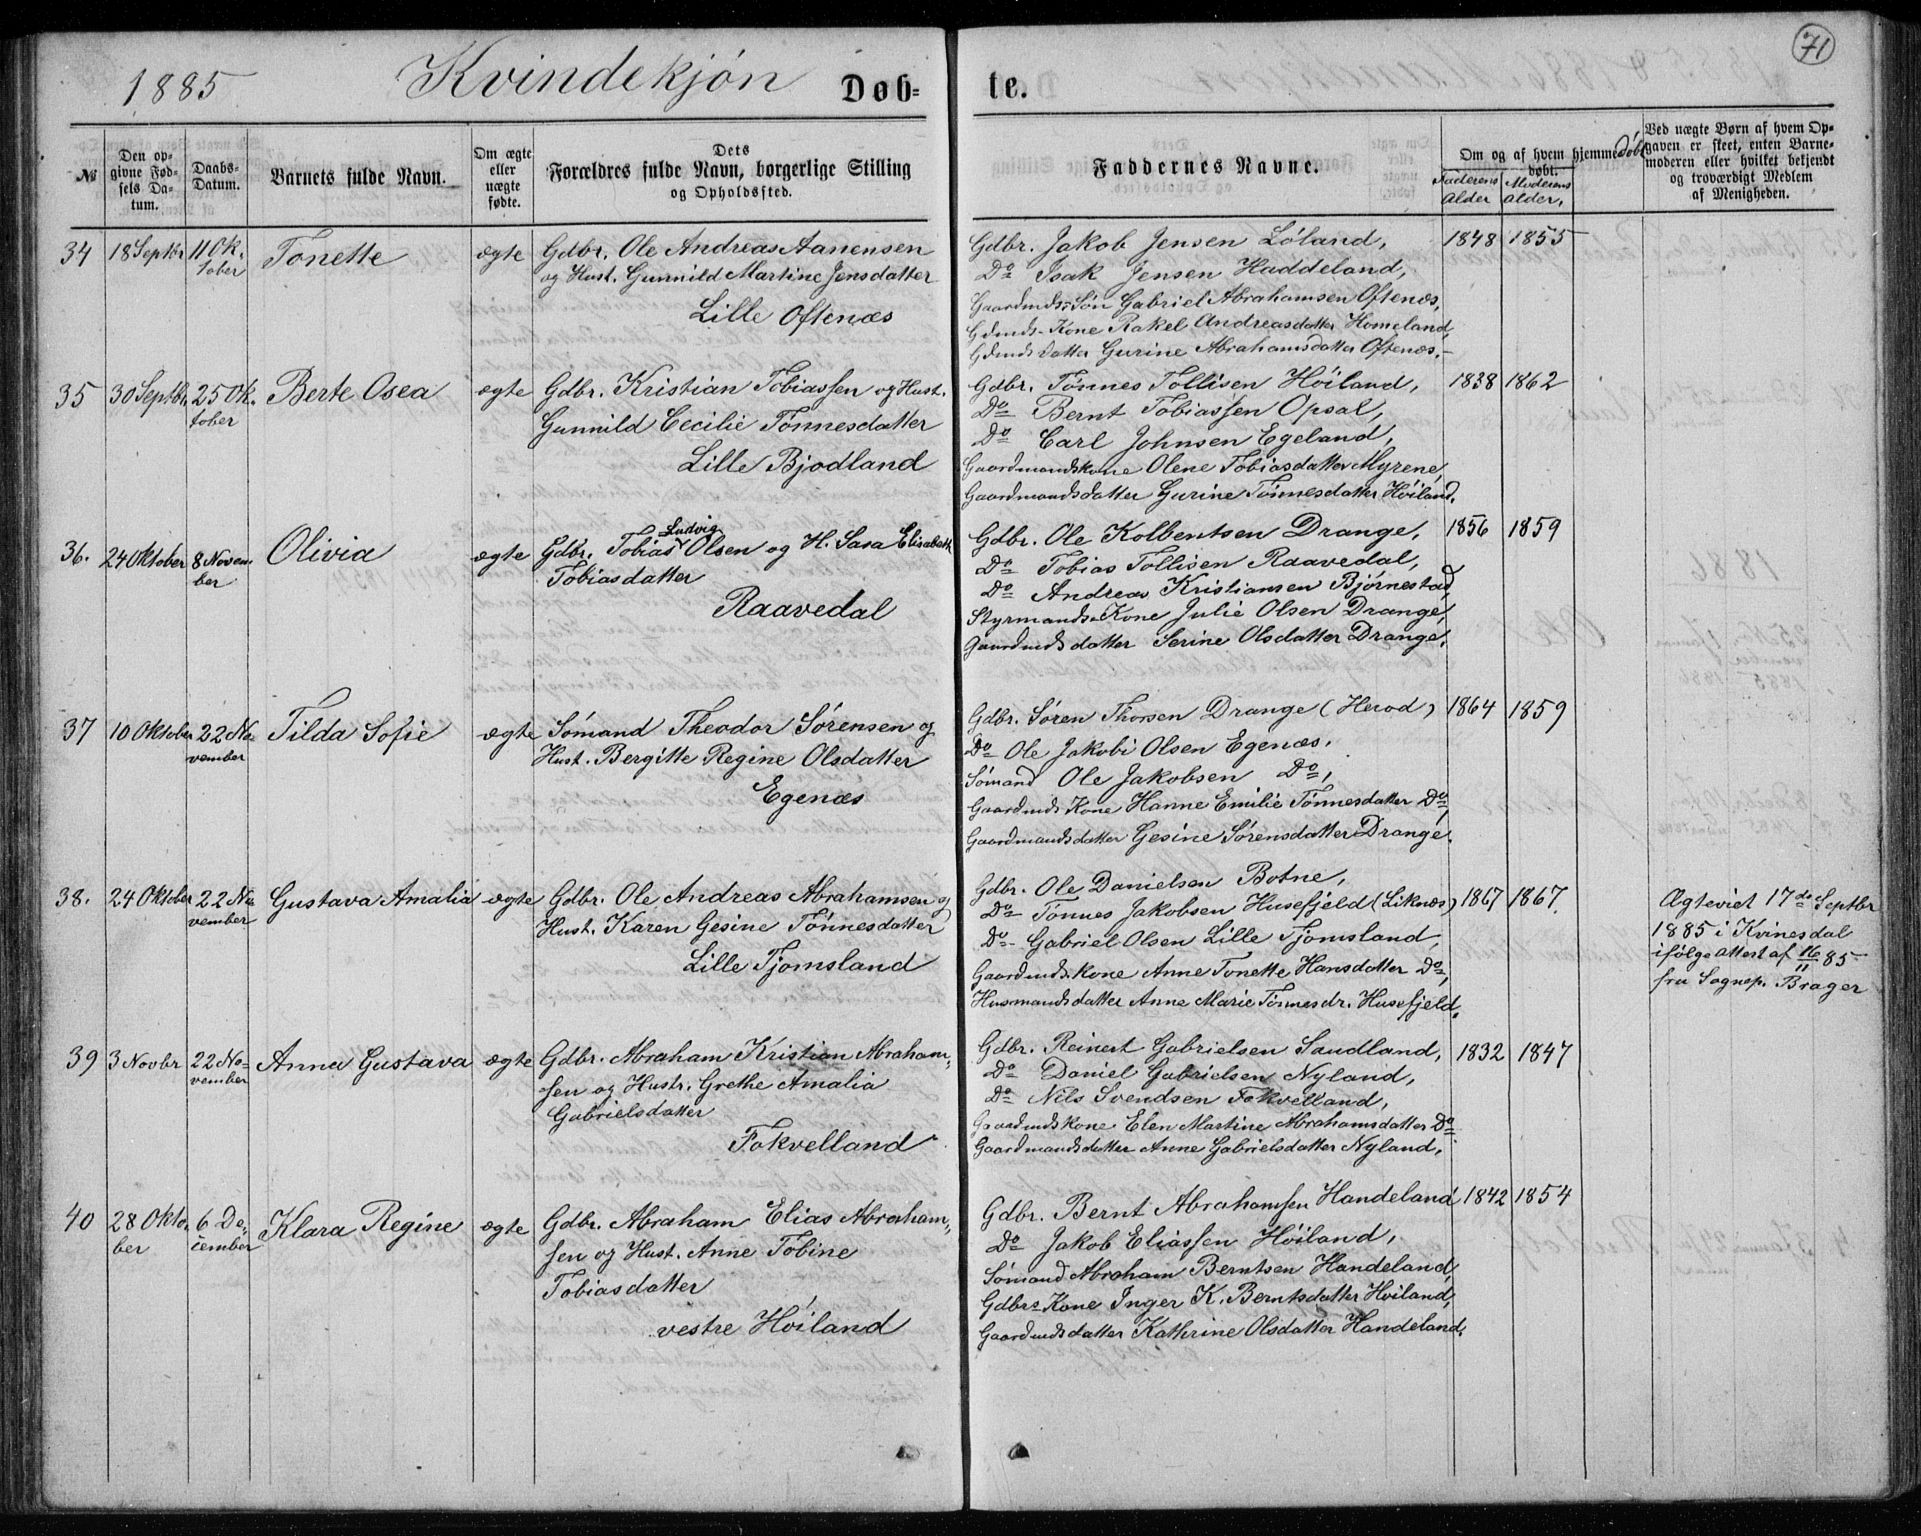 71
1885 Kvindekjön Døb=
te.
№
Den op-
givne Fød-
sels Da-
tum.
Daabs-
Datum.
Barnets fulde Navn.
Om ægte
eller
uægte
fødte.
Dets
Forældres fulde Navn, borgerlige Stilling
og Opholdssted.
Faddernes Navne.
Om og af hvem hjemmedøbt
døbt.
Faderens
Alder
Moderens
alder.
Ved uægte Børn af hvem Op-
gaven er skeet, enten Barne-
moderen eller hvilket bekjendt
og troværdigt Medlem
af Menigheden.
34 18 Septbr 11 Ok-
tober
Tonette
ægte
Gdbr. Ole Andreas Aanensen
og Hust. Gunnild Martine Jensdatter
Lille Oftenæs
Gdbr. Jakob Jensen Löland,
Do Isak Jensen Haddeland,
Gaardmds-Søn Gabriel Abrahamsen Oftenæs,
Gdmds-Kone Rakel Andreasdatter Homeland,
Gdmdsdatter Gurine Abrahamsdatter Oftenæs.
1848 1855
35 30 Septbr. 25 Ok-
tober
Berte Osea
ægte
Gdbr. Kristian Tobiassen og Hust.
Gunnild Cecilie Tönnesdatter
Lille Bjodland
Gdbr. Tönnes Tollisen Höiland,
Do Bernt Tobiassen Opsal,
Do Carl Johnsen Egeland,
Gaardmandskone Olene Tobiasdatter Myrene,
Gaardmandsdatter Gurine Tönnesdatter Höiland.
1838 1862
36. 24 Oktober 8 Novem-
ber
Olivia
ægte
Gdbr. Tobias Ludvig Olsen og H. Sara Elisabeth
Tobiasdatter
Raavedal
Gdbr. Ole Kolbentsen Drange,
Do Tobias Tollisen Raavedal,
Do Andreas Kristiansen Björnestad,
Styrmands-Kone Julie Olsen Drange,
Gaardmdsdatter Serine Olsdatter Drange.
1856 1859
37 10 Oktober 22 No-
vember
Tilda Sofie
ægte
Sömand Theodor Sörensen og
Hust. Bergitte Regine Olsdatter
Egenæs
Gdbr. Sören Thorsen Drange (Herod)
Do Ole Jakobi Olsen Egenæs.
Sömand Ole Jakobsen Do,
Gaardmds Kone Hanne Emilie Tönnesdatter Do,
Gaardmandsdatter Gesine Sörensdatter Drange.
1864 1859
38. 24 Oktober 22 No-
vember
Gustava Amalia
ægte
Gdbr. Ole Andreas Abrahamsen og
Hust. Karen Gesine Tönnesdatter
Lille Tjomsland
Gdbr. Ole Danielsen Botne,
Do Tönnes Jakobsen Husefjeld (Liknæs)
Do Gabriel Olsen Lille Tjomsland,
Gaardmds.kone Anne Tonette Hansdatter Do,
Husmandsdatter Anne Marie Tönnesdr. Husefjeld.
1867 1867.
Ægteviet 17de Septbr
1885 i Kvinesdal
ifølge attest af 16/11 85
fra Sognep. Brager
39 3 Novbr 22 No-
vember
Anna Gustava
ægte
Gdbr. Abraham Kristian Abraham-
sen og Hustr. Grethe Amalia
Gabrielsdatter
Fokvelland
Gdbr. Reinert Gabrielsen Saudland,
Do Daniel Gabrielsen Nyland,
Do Nils Svendsen Fokvelland,
Gaardmdskone Elen Martine Abrahamsdatter Do
Gaardmandsdatter Anne Gabrielsdatter Nyland.
1832 1847
40 28 Okto-
ber
6 De-
cember
Klara Regine
ægte
Gdbr. Abraham Elias Abraham-
sen og Hust. Anne Tobine
Tobiasdatter
vestre Höiland
Gdbr. Bernt Abrahamsen Handeland
Do Jakob Eliassen Höiland,
Sömand Abraham Berntsen Handeland,
Gdbrs Kone Inger K. Berntsdatter Höiland,
Gaardmdsdatter Kathrine Olsdatter Handeland.
1842 1854